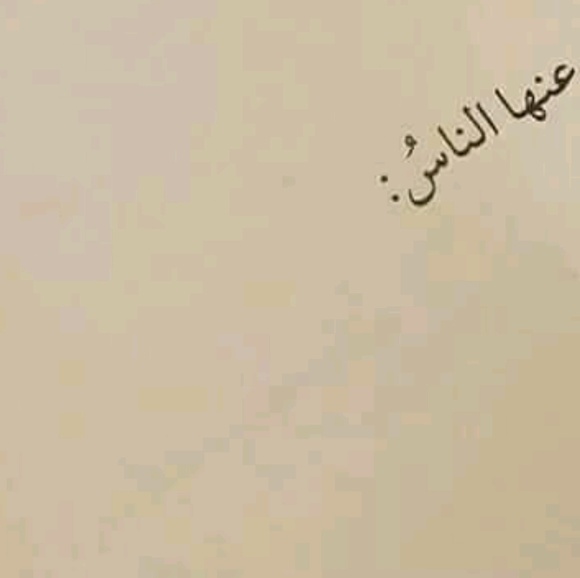 عنها الناسُ: